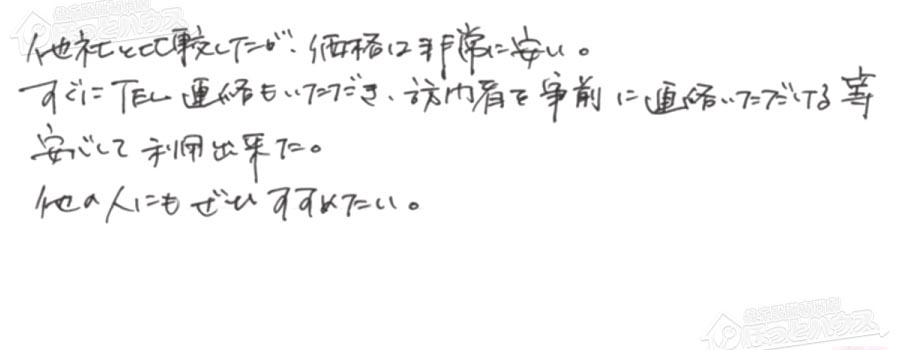 他社と比較したが、価格は非常に安い。
すぐにTEL連絡もいただき、訪問者を事前に連絡いただける等
安心して利用出来た。
他の人にもぜひすすめたい。
ほっとハウス
ほっとハウス